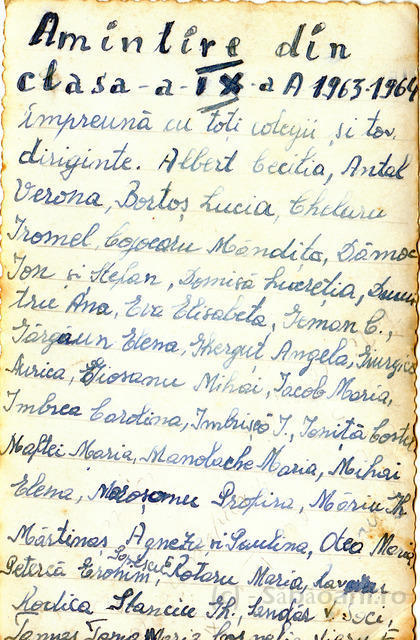 Amintire din
clasa-a-IX-a A 1963-1964
Împreună cu toți colegii și tov.
diriginte. Albert Cecilia, Antal
Verona, Bortoș Lucia, Chelaru
Iromel, Cojocaru Măndița, Dămoc
Ion și Ștefan, Domișă Lucreția, Dumi
tric Ana, Eva Elisabeta, Geman C.,
Gărgaun Elena, Gherguț Angela,
Aurica, Giosanu Mihai, Iacob Maria,
Imbrea Carolina, Imbrișcă I., Ioniță Costa
Maftei Maria, Manolache Maria, Mihai
Elena, Moroșanu Profira, Măriu Th
Mărtinaș Agneza și Paulina, Olea Maria
Petercă Eronim, Rotaru Maria,
Rodica Stanciu Gh., Șandas V
Maria
(c) Sabaoani.ro